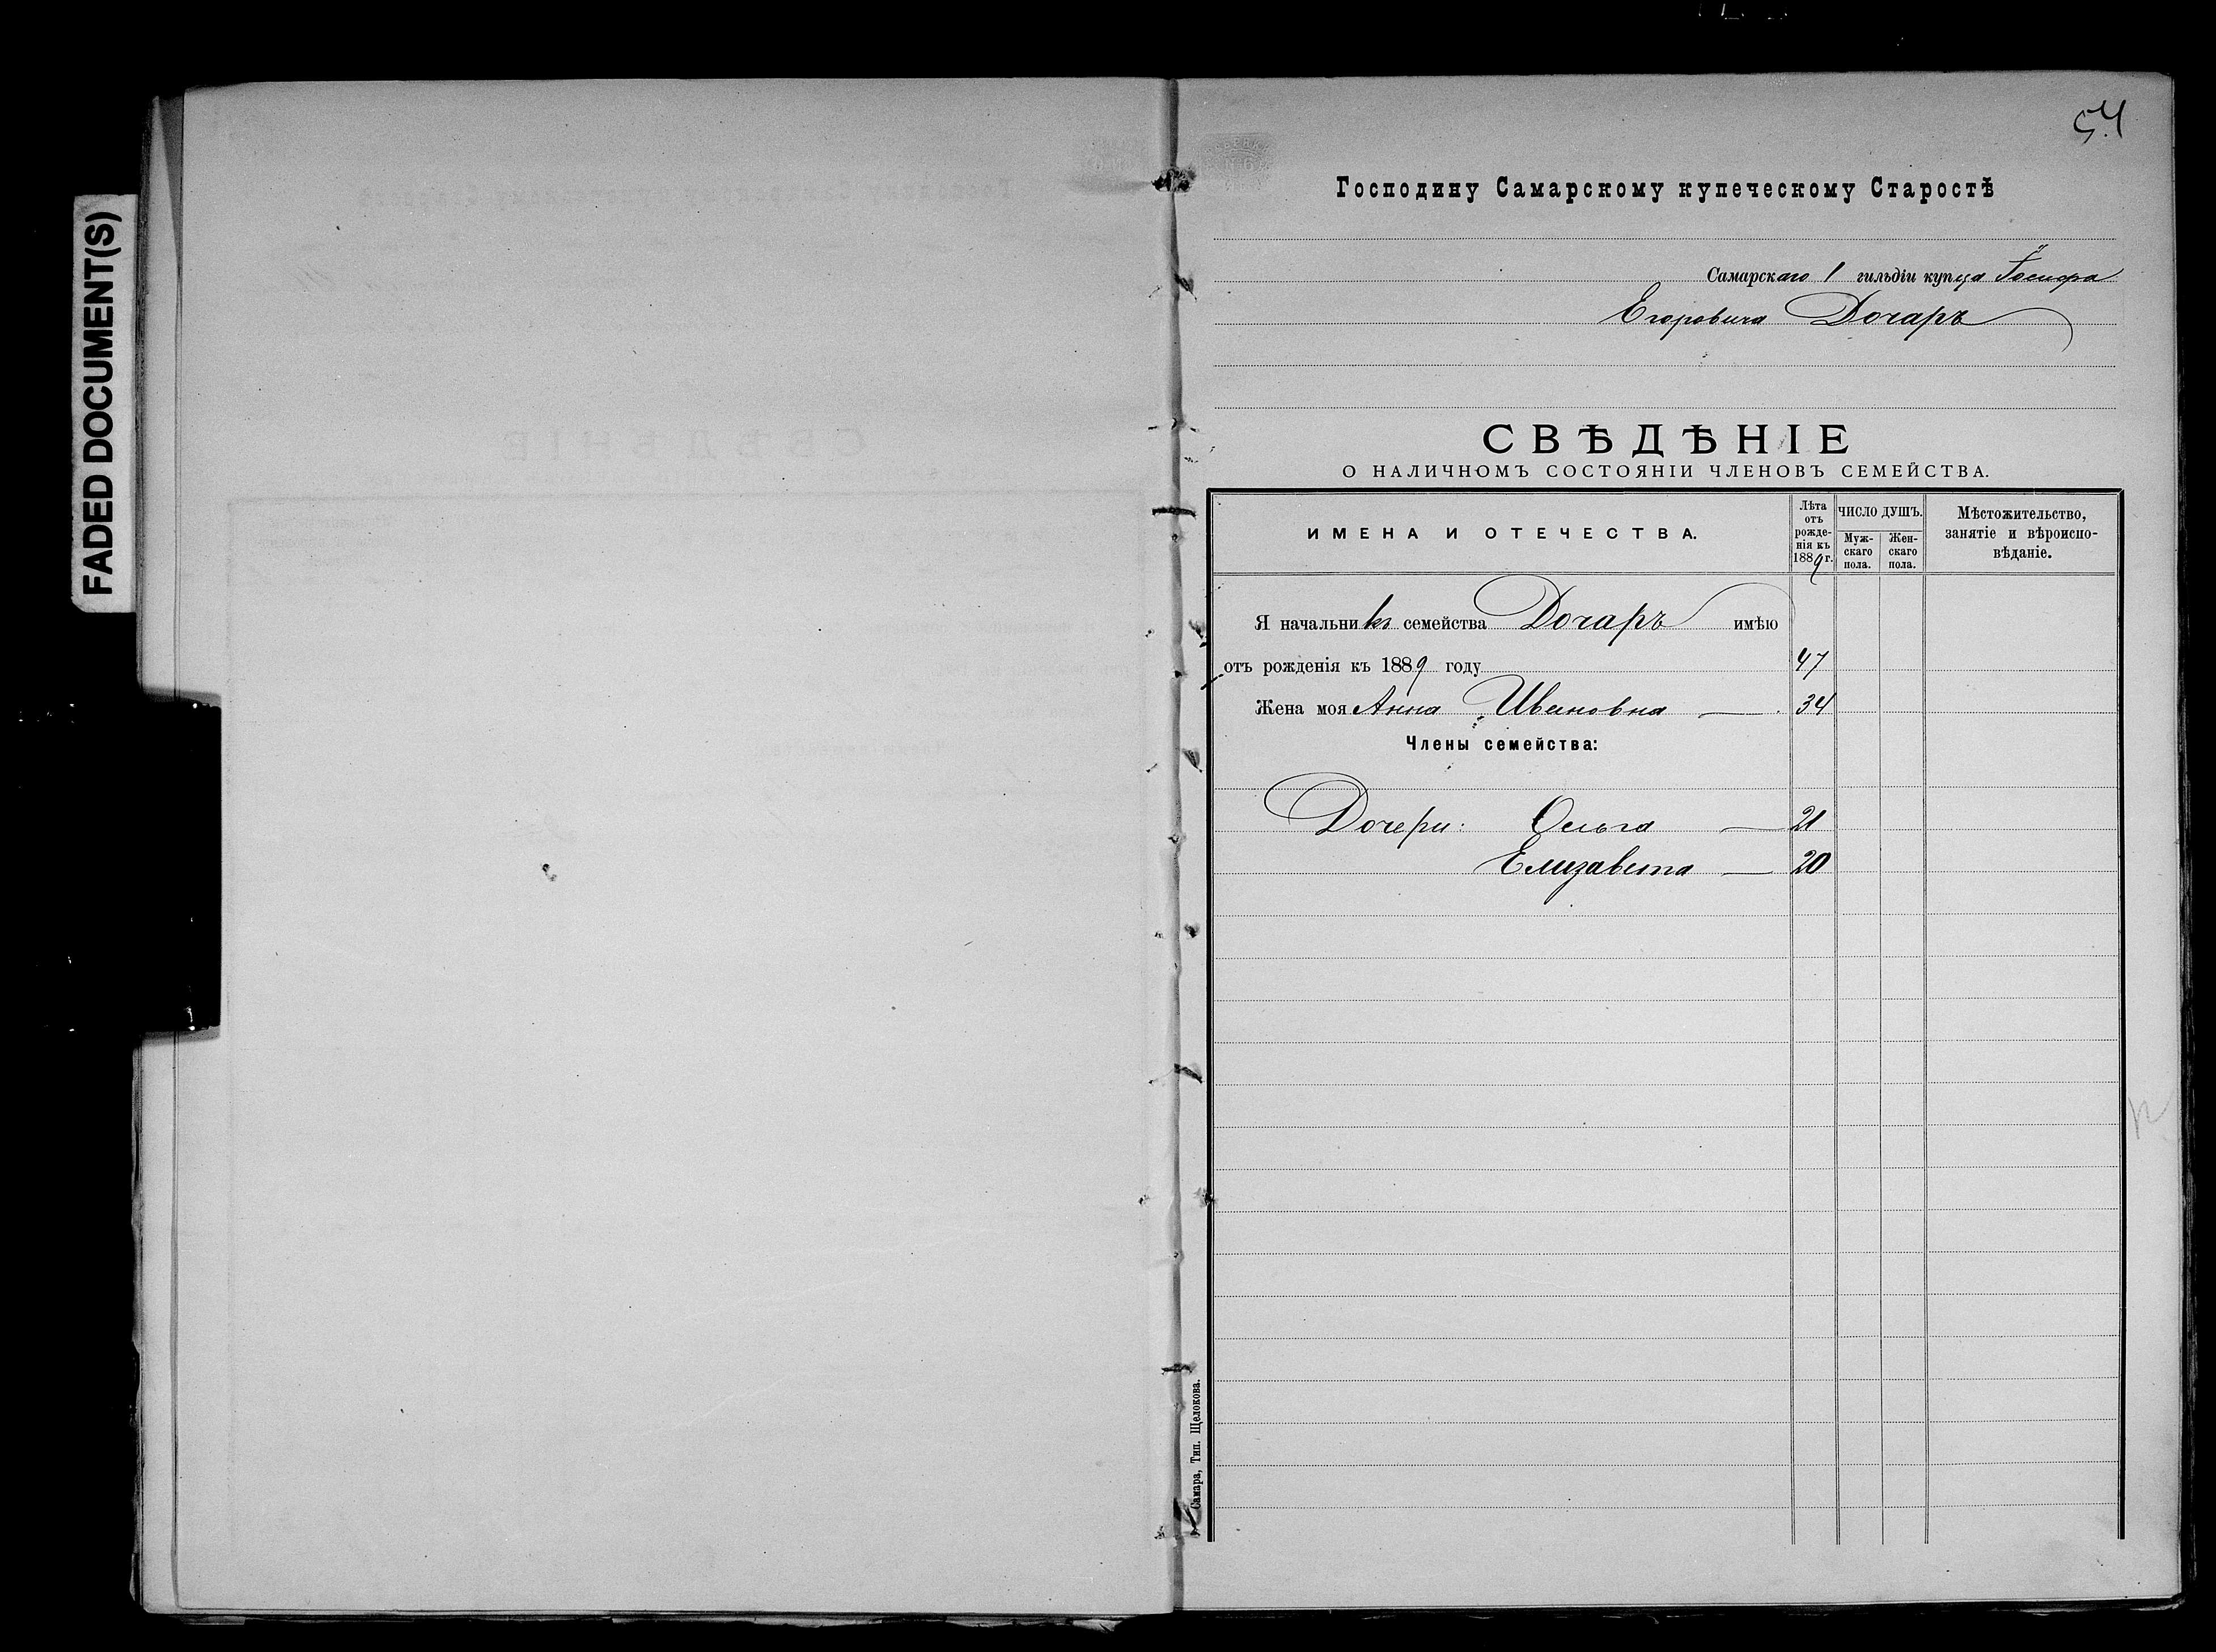 FADED DOCUMENT(S)
54
Господину Самарскому купеческому Старостѣ
Самарскаго 1 гильдіи купца Іосифа
Егоровича Дочаръ
СВѢДѢНІЕ
О НАЛИЧНОМЪ СОСТОЯНІИ ЧЛЕНОВЪ СЕМЕЙСТВА.
ИМЕНА И ОТЕЧЕСТВА.
Лѣта отъ рожде-нія къ 1889 г.
ЧИСЛО ДУШЪ.
Муж-скаго пола.
Жен-скаго пола.
Мѣстожительство, занятіе и вѣроиспо-вѣданіе.
Я начальникъ семейства Дочаръ имѣю
отъ рожденія къ 1889 году 47
Жена моя Анна Ивановна — 34
Члены семейства:
Дочери: Ольга — 21
Елизавета — 20
Самара, Тип. Щелокова.